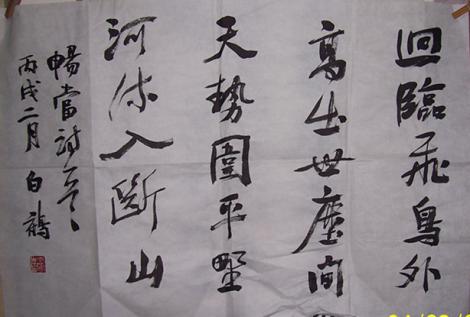 迥臨飛鳥外
高出世塵間
天勢圍平野
河流入斷山
暢當詩
丙戌二月 白